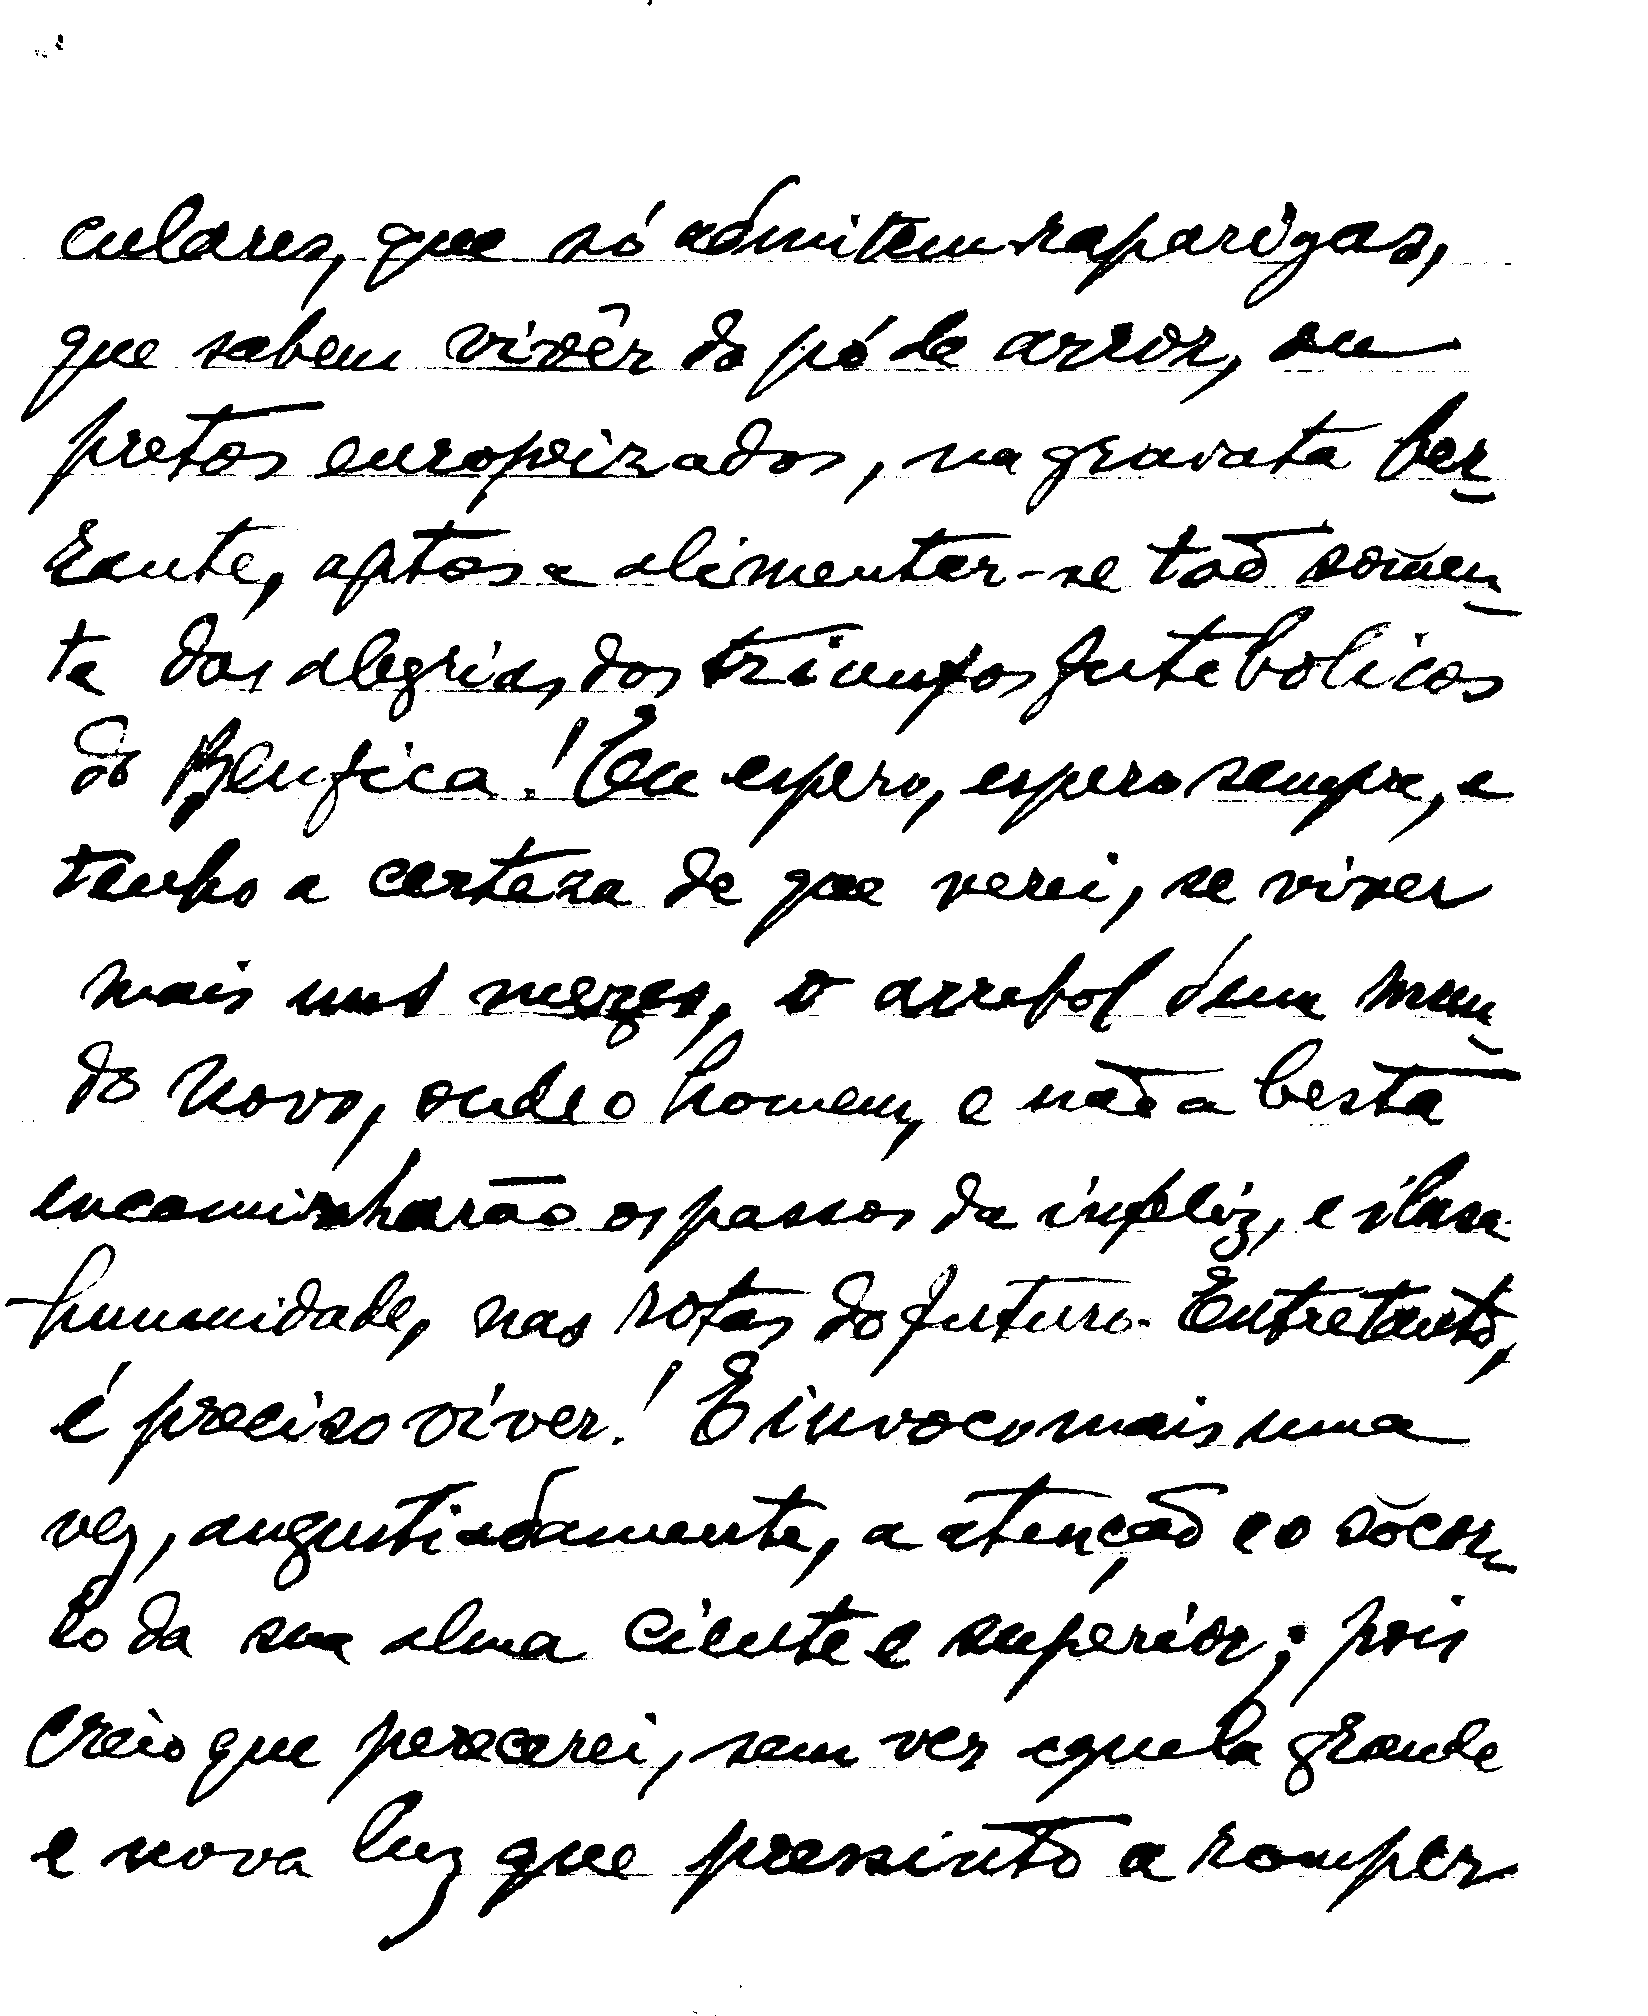 culares, que só admitem raparigas,
que sabem vivêr do pó de arroz, ou
pretos europeizados, na gravata ber-
rante, aptos a alimentar-se tão sòmen-
te das alegrias, dos triunfos futebolicos
do Benfica! Eu espero, espero sempre, e
tenho a certeza de que verei, se viver
mais uns mezes, o arrebol dum mun-
do novo, onde o homem, e não a besta
encaminharão os passos da infeliz, e
humanidade, nas rotas do futuro. Entretanto,
é preciso viver! E invoco mais uma
vez, angustiadamente, a atenção e o socor-
ro da sua alma ciente e superior; pois
creio que perecerei, sem ver aquela grande
e nova luz que pressinto a romper